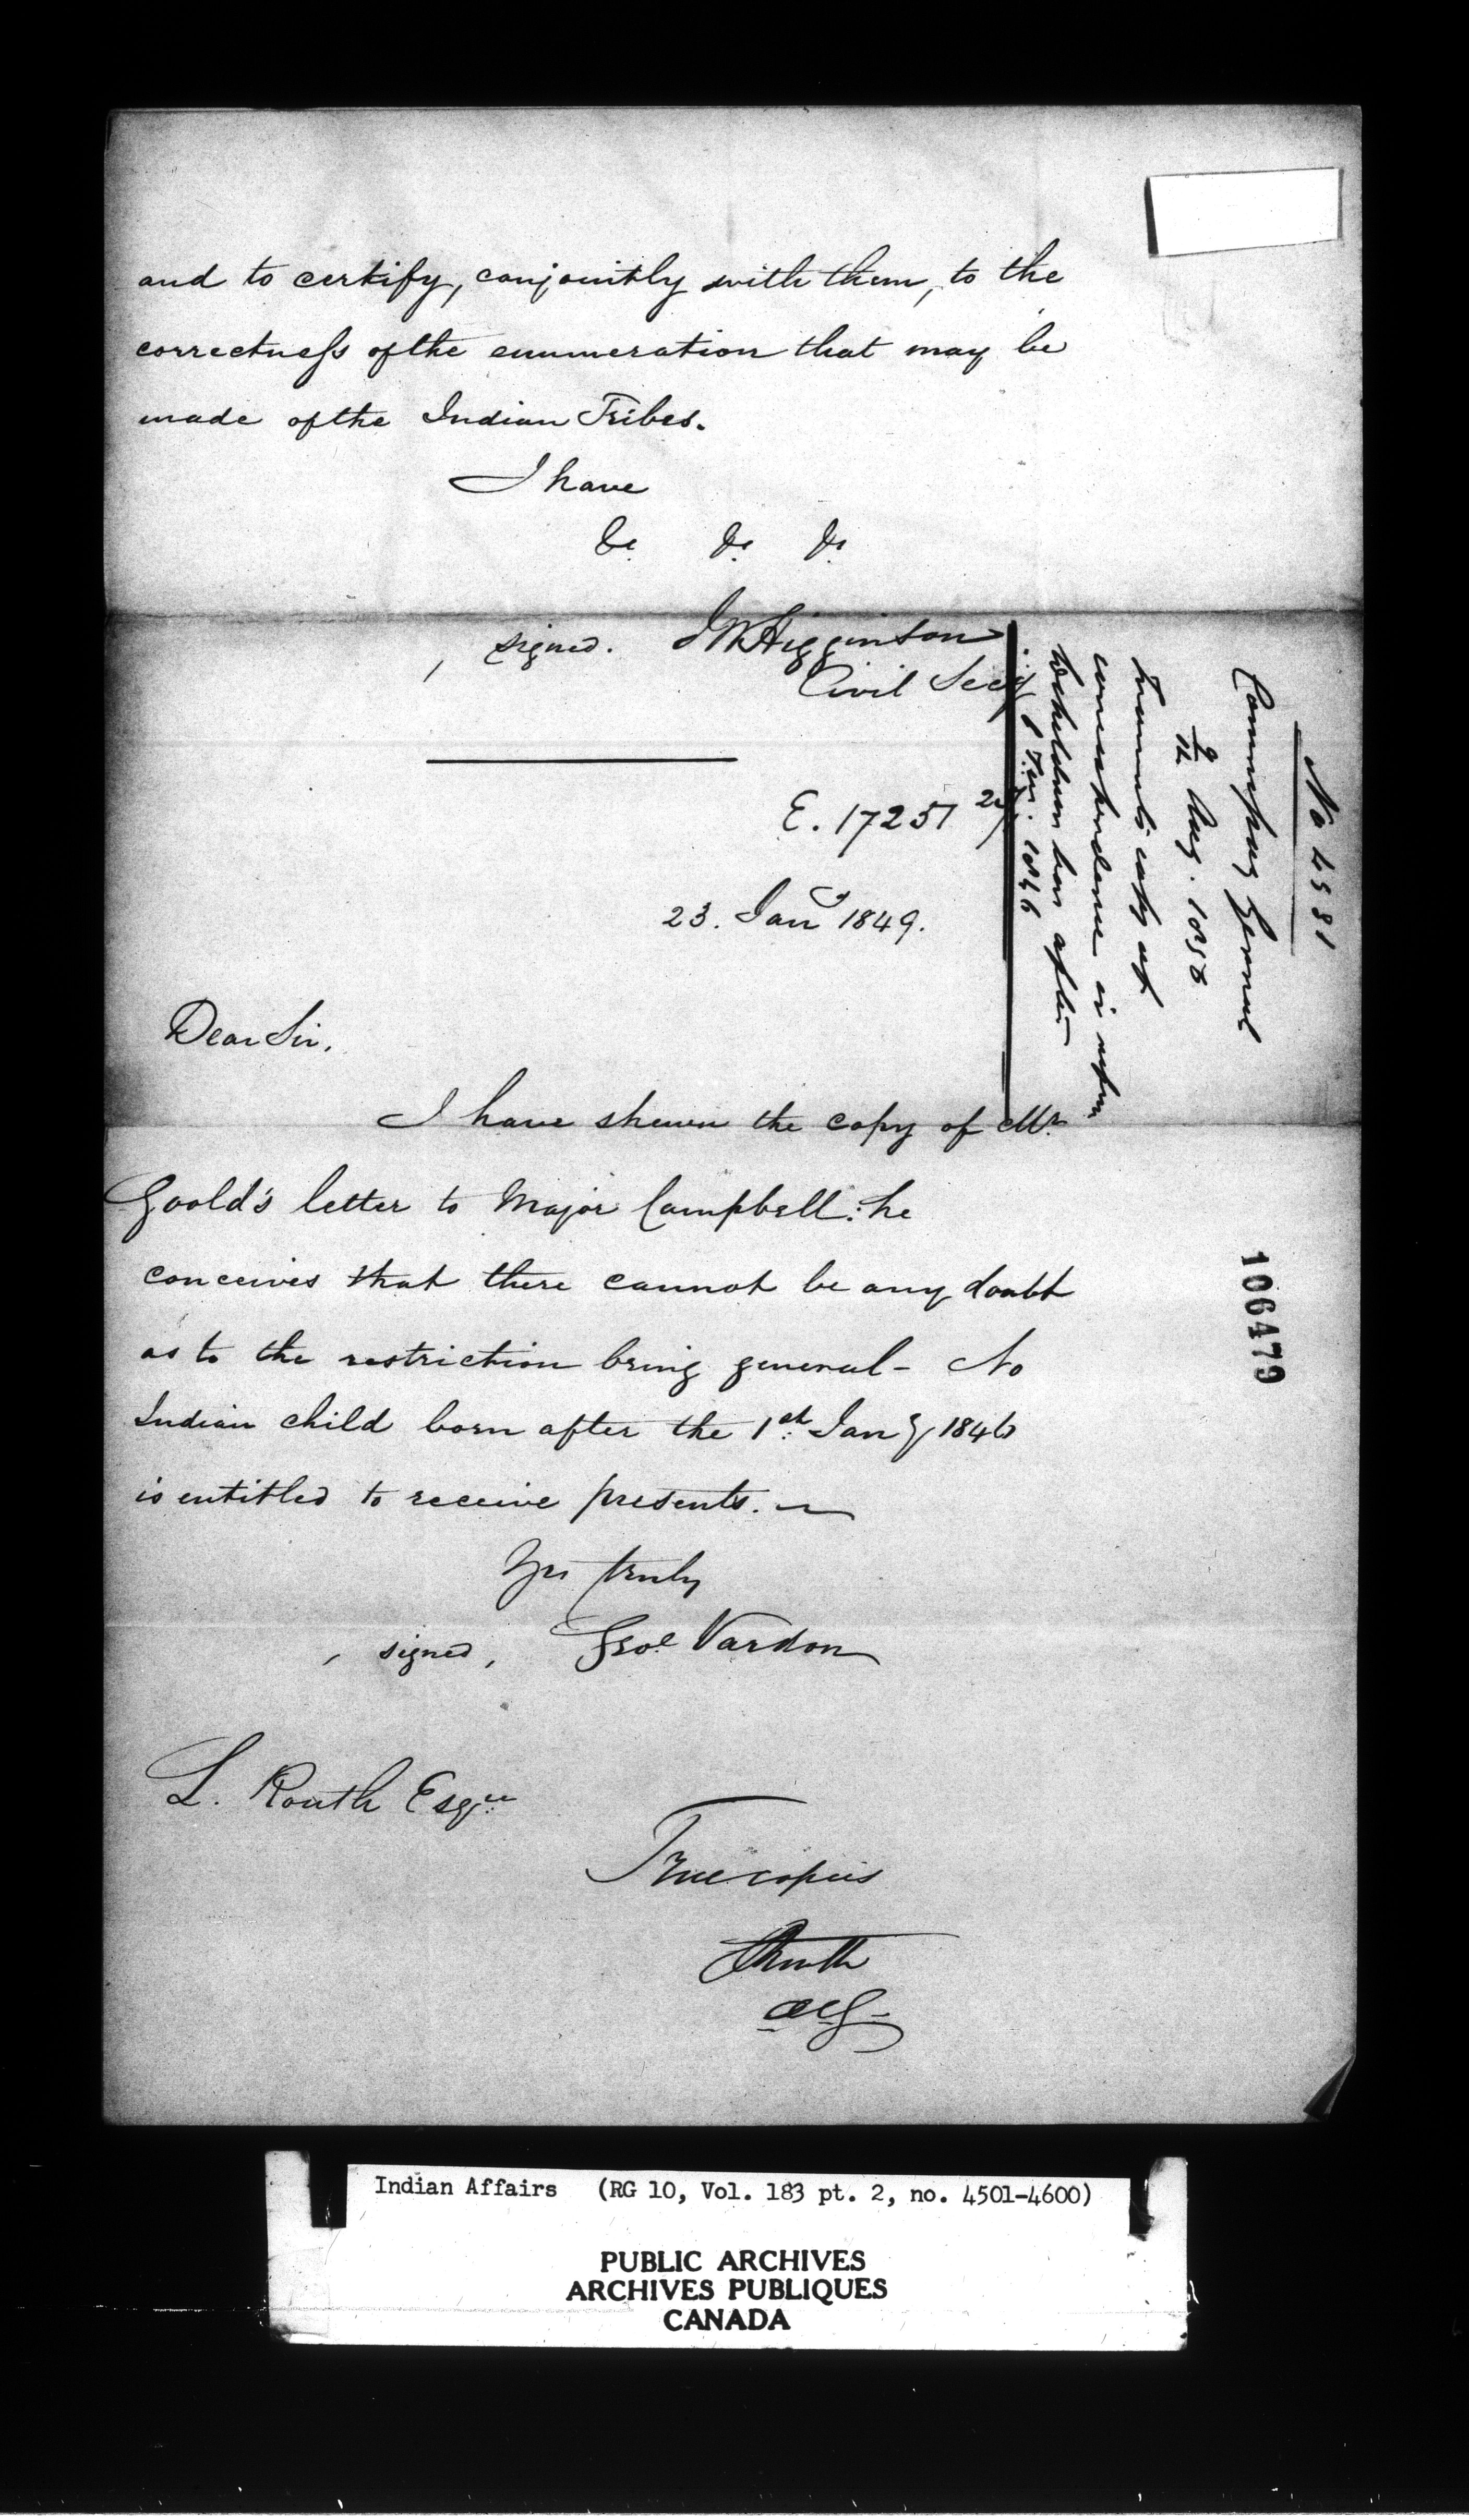 and to certify, conjointly with them, to the
correctness of the enumeration that may be
made of the Indian Tribes.
I have
&c. &c. &c.
signed. JM Higginson
Civil Secy
E. 17251
23. Jany 1849.
Dear Sir,
I have shewn the copy of Mr.
Goold's letter to Major Campbell: he
conceives that there cannot be any doubt
as to the restriction being general - No
Indian child born after the 1st. Jany 1846
is entitled to receive presents.
Yrs truly
signed, Geoe. Vardon
L. Routh Esqre
True copies
Routh
No 4581
Commissary General
Aug. 1850
Transmits copy of
correspondence
children born after
1846
106479
Indian Affairs (RG 10, Vol. 183 pt. 2, no. 4501-4600)
PUBLIC ARCHIVES
ARCHIVES PUBLIQUES
CANADA